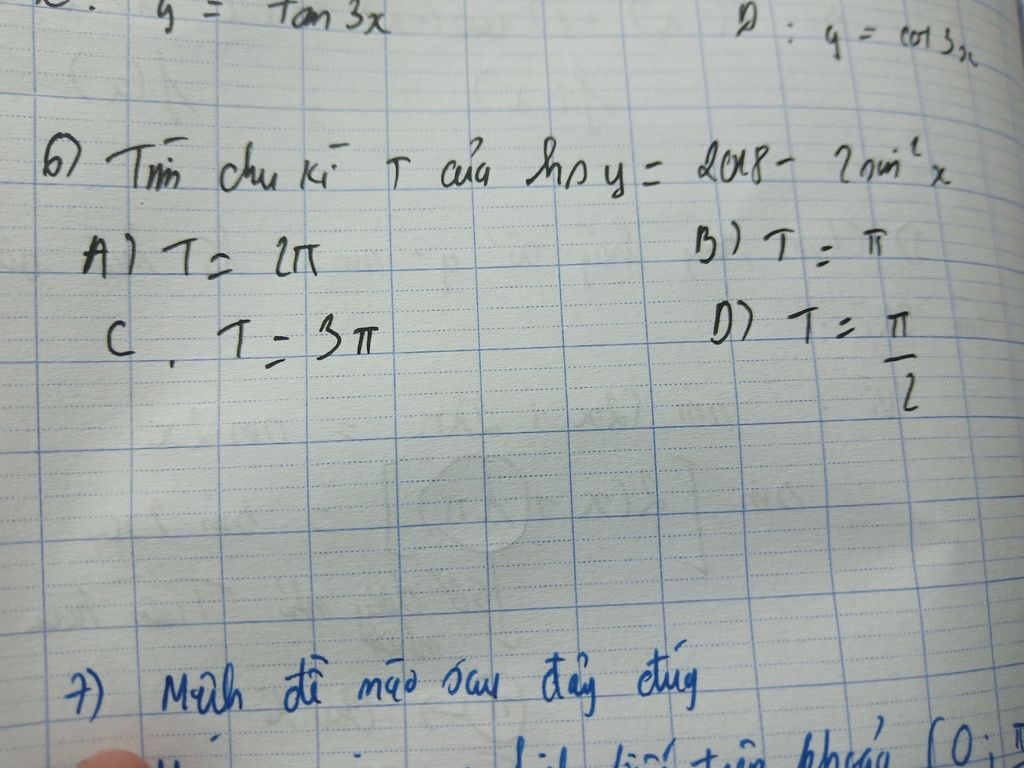 y = tan 3x D : y = cot 3x
6) Tìm chu kì T của hs y = 2018 - 2 sin² x
A) T = 2π B) T = π
C. T = 3π D) T = π/2
7) Mệnh đề nào sau đây đúng
trên khoảng (0;